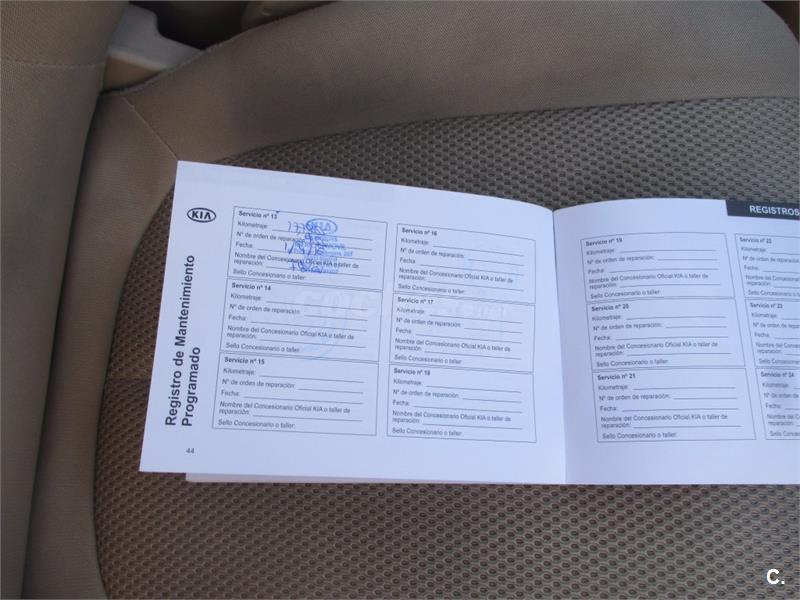 KIA
Registro de Mantenimiento
Programado
Servicio nº 13
Kilometraje:
Nº de orden de reparación:
Fecha:
Nombre del Concesionario Oficial KIA o taller de
reparación:
Sello Concesionario o taller:
Servicio nº 14
Kilometraje:
Nº de orden de reparación:
Fecha:
Nombre del Concesionario Oficial KIA o taller de
reparación:
Sello Concesionario o taller:
Servicio nº 15
Kilometraje:
Nº de orden de reparación:
Fecha:
Nombre del Concesionario Oficial KIA o taller de
reparación:
Sello Concesionario o taller:
44
Servicio nº 16
Kilometraje:
Nº de orden de reparación:
Fecha:
Nombre del Concesionario Oficial KIA o taller de
reparación:
Sello Concesionario o taller:
Servicio nº 17
Kilometraje:
Nº de orden de reparación:
Fecha:
Nombre del Concesionario Oficial KIA o taller de
reparación:
Sello Concesionario o taller:
Servicio nº 18
Kilometraje:
Nº de orden de reparación:
Fecha:
Nombre del Concesionario Oficial KIA o taller de
reparación:
Sello Concesionario o taller:
REGISTROS
Servicio nº 19
Kilometraje:
Nº de orden de reparación:
Fecha:
Nombre del Concesionario Oficial KIA o taller de
reparación:
Sello Concesionario o taller:
Servicio nº 20
Kilometraje:
Nº de orden de reparación:
Fecha:
Nombre del Concesionario Oficial KIA o taller de
reparación:
Sello Concesionario o taller:
Servicio nº 21
Kilometraje:
Nº de orden de reparación:
Fecha:
Nombre del Concesionario Oficial KIA o taller de
reparación:
Sello Concesionario o taller:
Servicio nº 22
Kilometraje:
Nº de orden de
Fecha:
Nombre del Con
reparación:
Sello Concesion
Servicio nº 23
Kilometraje:
Nº de orden de
Fecha:
Nombre del
reparación:
Sello
Servicio nº 24
Kilometraje:
Nº de orden
Fecha:
Nombre
reparación:
Sello
C.